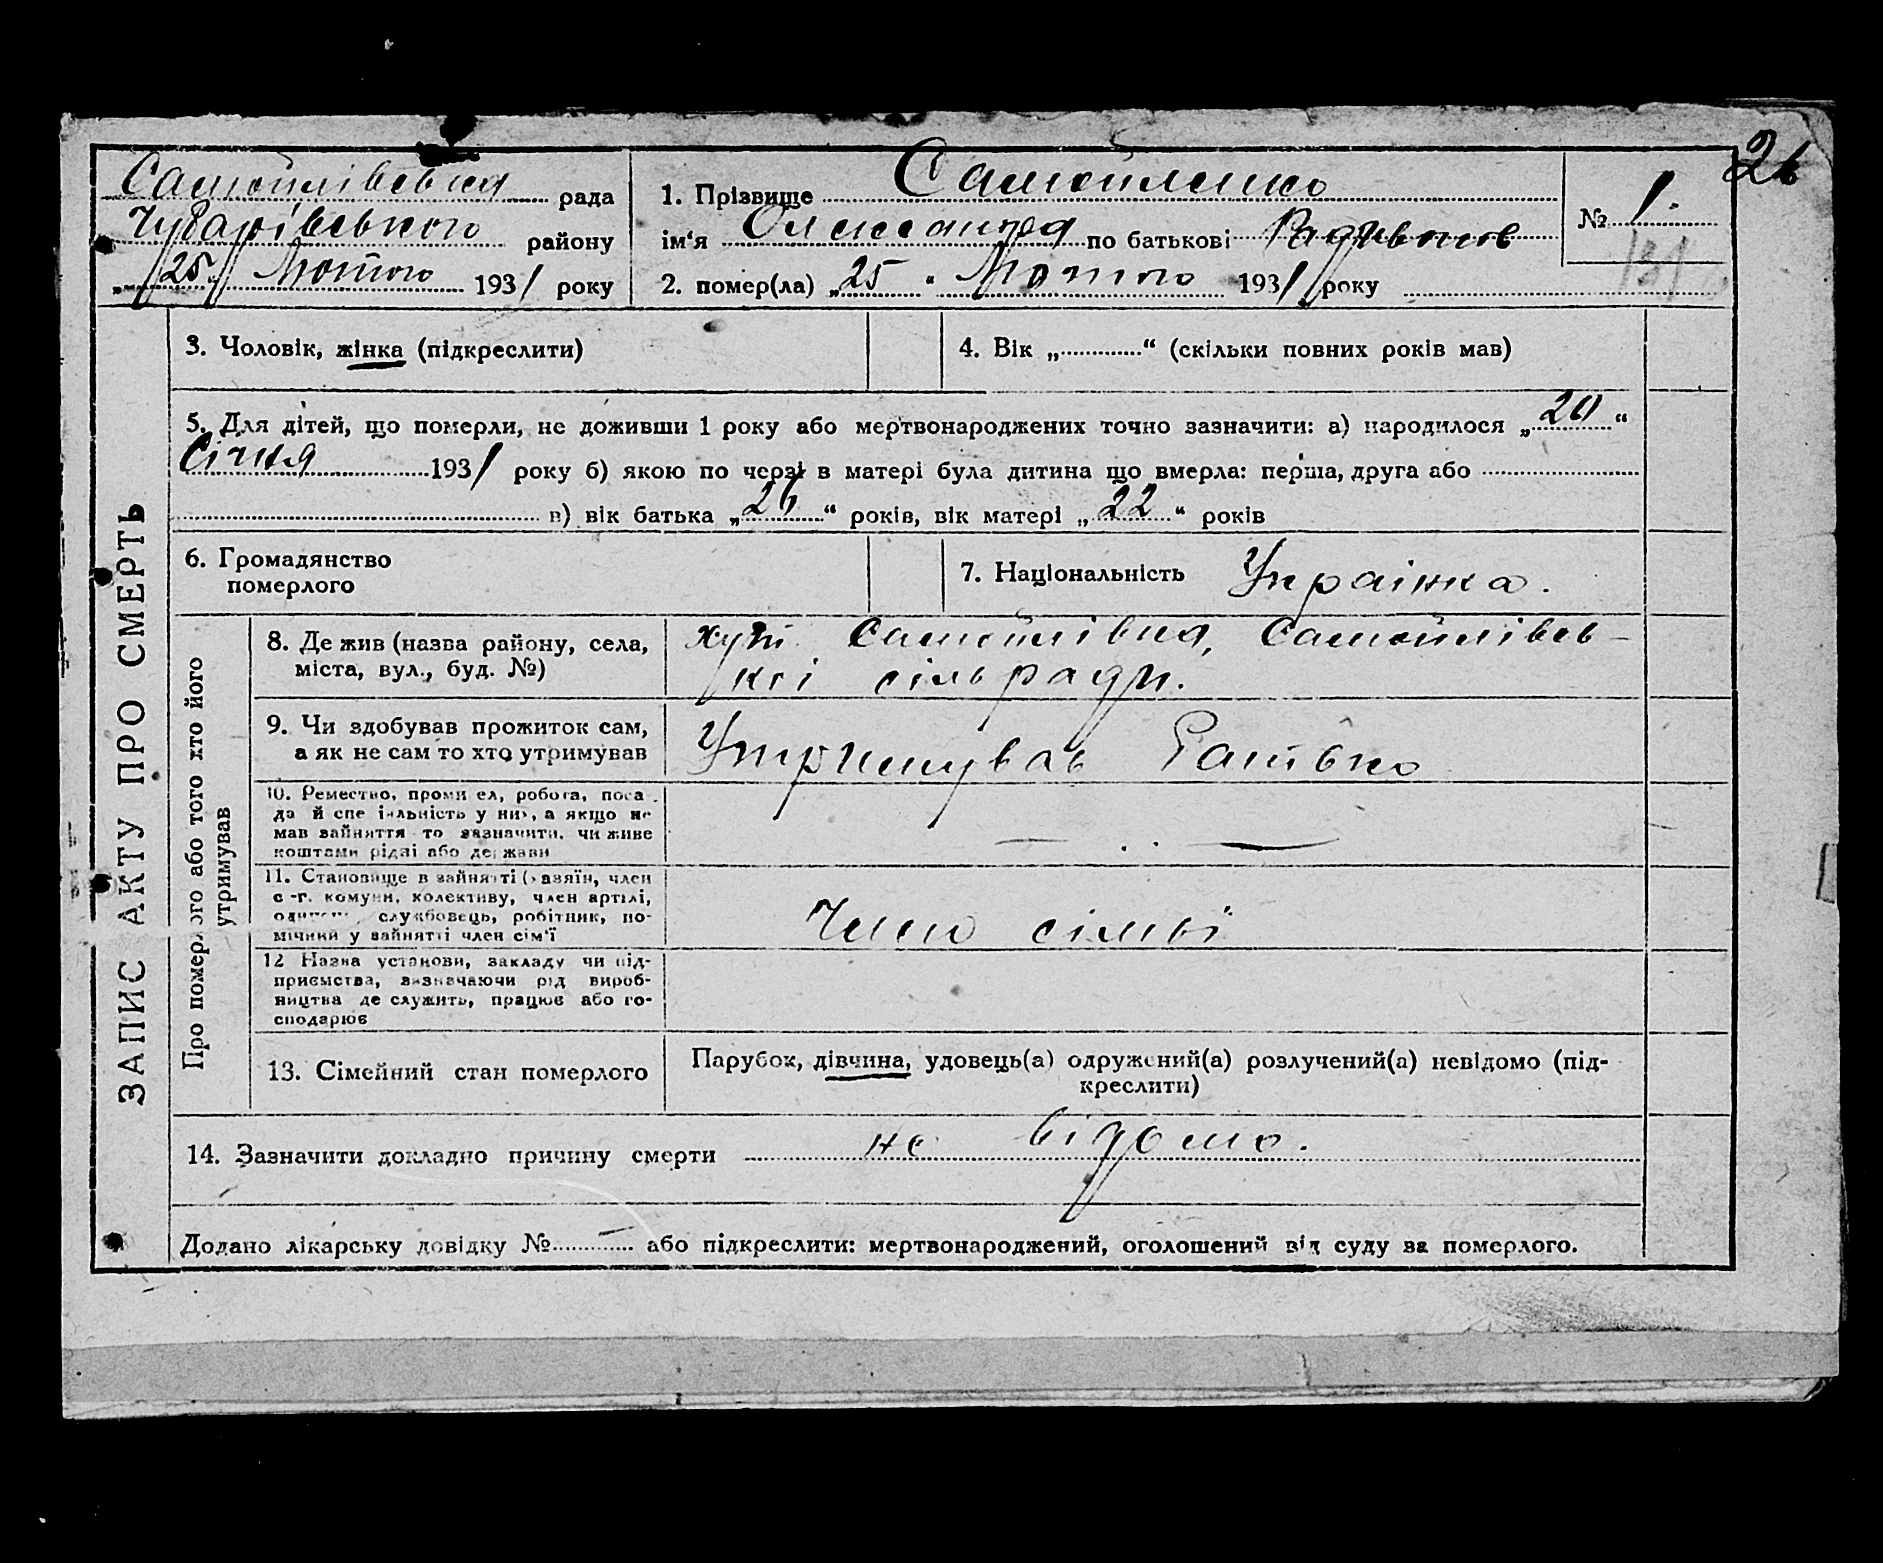 26
Самойлівська рада
Чубарівського району
„25“ Лютого 1931 року
1. Прізвище Самойленко
ім‘я Олександра по батькові Радивонов
2. помер(ла) „25“ Лютого 1931 року
№ 1.
131
3. Чоловік, жінка (підкреслити)
4. Вік „............“ (скільки повних років мав)
5. Для дітей, що померли, не доживши 1 року або мертвонароджених точно зазначити: а) народилося „20“
Січня 1931 року б) якою по черзі в матері була дитина що вмерла: перша, друга або
в) вік батька „26“ років, вік матері „22“ років
6. Громадянство
померлого
7. Національність Українка.
ЗАПИС АКТУ ПРО СМЕРТЬ
Про померлого або того хто його
утримував
8. Де жив (назва району, села,
міста, вул., буд. №)
хут. Самойлівка, Самойлівсь-
кої сільради.
9. Чи здобував прожиток сам,
а як не сам то хто утримував
Утримував Батько
10. Ремество, промисел, робота, поса-
да й спеціальність у них, а якщо не
мав зайняття то зазначити, чи живе
коштами рідні або держави
11. Становище в зайнятті (хазяїн, член
с.-г. комуни, колективу, член артілі,
службовець, робітник, по-
мічний у зайнятті член сім‘ї
Член сімьї
12 Назва установи, закладу чи під-
приємства, зазначаючи рід вироб-
ництва де служить, працює або го-
сподарює
13. Сімейний стан померлого
Парубок, дівчина, удовець(а) одружений(а) розлучений(а) невідомо (під-
креслити)
14. Зазначити докладно причину смерти не відомо.
Додано лікарську довідку №— або підкреслити: мертвонароджений, оголошений від суду за померлого.